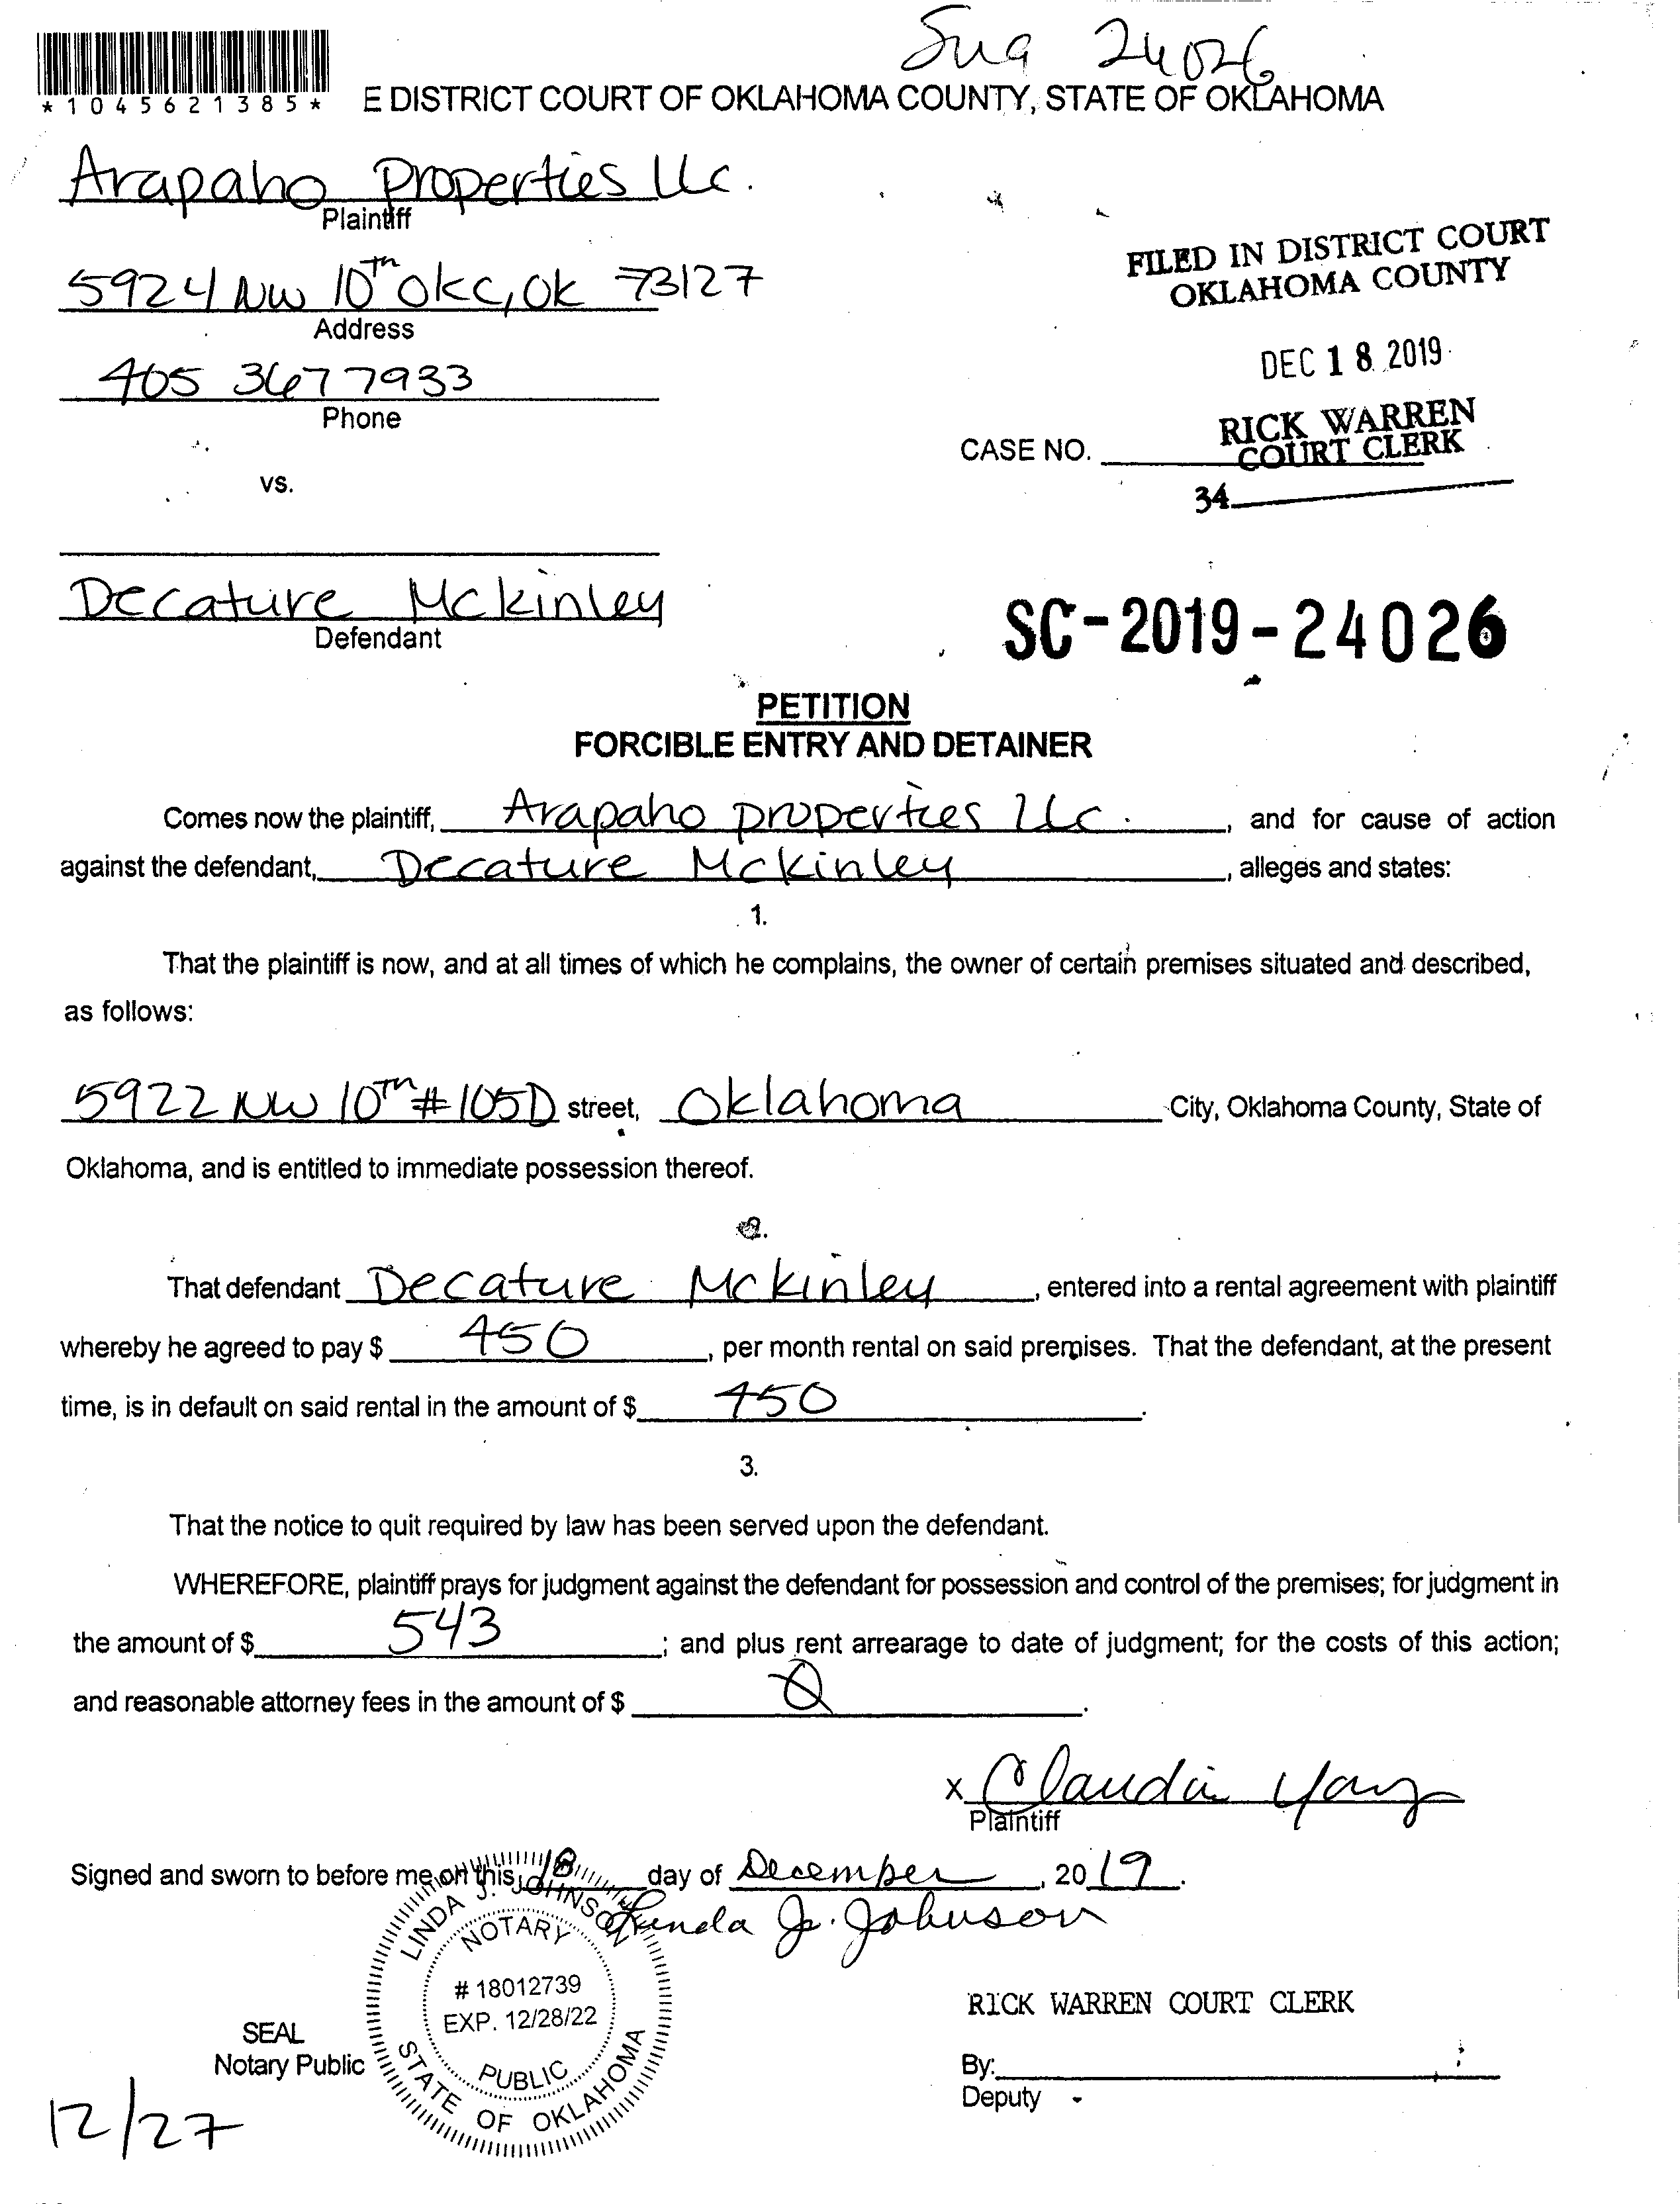 Sug 24026
*1045621385*
E DISTRICT COURT OF OKLAHOMA COUNTY, STATE OF OKLAHOMA
Arapaho Properties llc.
Plaintiff
5924 NW 10th OKC, OK 73127
Address
405 367 7933
Phone
FILED IN DISTRICT COURT
OKLAHOMA COUNTY
DEC 18 2019
RICK WARREN
COURT CLERK
CASE NO.
34
vs.
Decature Mckinley
Defendant
SC-2019-24026
PETITION
FORCIBLE ENTRY AND DETAINER
Comes now the plaintiff, Arapaho properties llc., and for cause of action
against the defendant, Decature Mckinley, alleges and states:
1.
That the plaintiff is now, and at all times of which he complains, the owner of certain premises situated and described,
as follows:
5922 NW 10th #105D street, Oklahoma City, Oklahoma County, State of
Oklahoma, and is entitled to immediate possession thereof.
2.
That defendant Decature Mckinley, entered into a rental agreement with plaintiff
whereby he agreed to pay $ 450, per month rental on said premises. That the defendant, at the present
time, is in default on said rental in the amount of $ 450.
3.
That the notice to quit required by law has been served upon the defendant.
WHEREFORE, plaintiff prays for judgment against the defendant for possession and control of the premises; for judgment in
the amount of $ 543; and plus rent arrearage to date of judgment; for the costs of this action;
and reasonable attorney fees in the amount of $ 0.
x Claudia
Plaintiff
Signed and sworn to before me on this 18 day of December, 2019.
Linda J. Johnson
LINDA J. JOHNSON
NOTARY
# 18012739
EXP. 12/28/22
PUBLIC
STATE OF OKLAHOMA
SEAL
Notary Public
RICK WARREN COURT CLERK
By:
Deputy
12/27